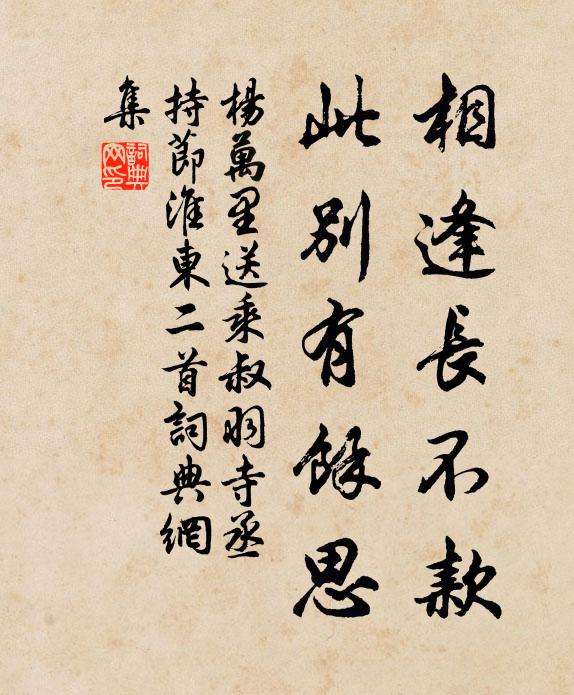 相逢長不款
此別有餘思
楊萬里送乘叔羽寺丞
持節淮東二首詞典網
集
詞典
网印